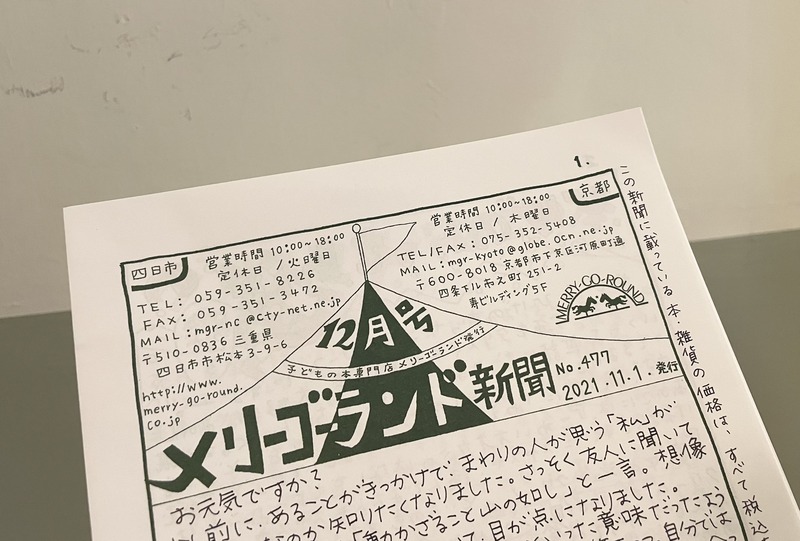 1.
四日市
営業時間 10:00~18:00
定休日 / 火曜日
TEL: 059-351-8226
FAX: 059-351-3472
MAIL: mgr-nc@cty-net.ne.jp
〒510-0836 三重県
四日市市松本3-9-6
http://www.
merry-go-round.
co.jp
京都
営業時間 10:00~18:00
定休日 / 木曜日
TEL/FAX: 075-352-5408
MAIL: mgr-kyoto@globe.ocn.ne.jp
〒600-8018 京都市下京区河原町通
四条下ル市之町 251-2
寿ビルディング5F
MERRY-GO-ROUND
12月号
子どもの本専門店メリーゴーランド発行
メリーゴーランド新聞
No.477
2021.11.1.発行
この新聞に載っている本・雑貨の価格は、すべて税込
お元気ですか?
前に、あることがきっかけで、まわりの人が思う「私」が
なのか知りたくなりました。さっそく友人に聞いて
「動かざること山の如し」と一言。想像
て、目が点になりました。
といった意味だったよう
自分では